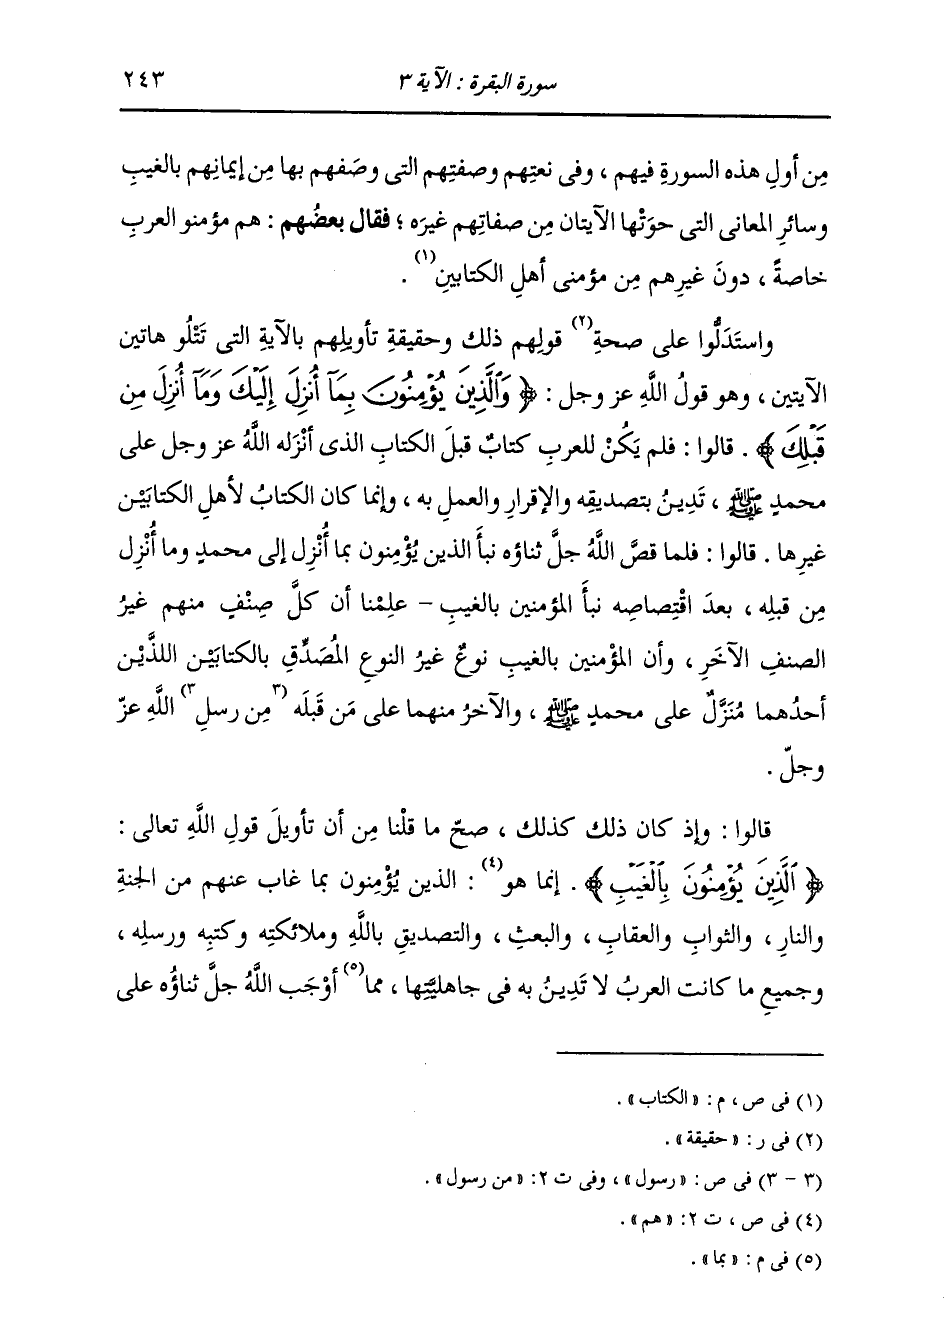 سورة البقرة : الآية ٣
٢٤٣
مِن أولِ هذه السورةِ فيهم ، وفى نعتِهم وصفتِهم التى وصَفهم بها مِن إيمانِهم بالغيبِ
وسائرِ المعانى التى حوَتْها الآيتان مِن صفاتِهم غيرَه ؛ فقال بعضُهم : هم مؤمنو العربِ
خاصةً ، دونَ غيرِهم مِن مؤمنى أهلِ الكتابينِ(١) .
واستَدَلُّوا على صحةِ(٢) قولِهم ذلك وحقيقةِ تأويلِهم بالآيةِ التى تَتْلُو هاتين
الآيتين ، وهو قولُ اللَّهِ عز وجل : ﴿ وَٱلَّذِينَ يُؤْمِنُونَ بِمَآ أُنزِلَ إِلَيْكَ وَمَآ أُنزِلَ مِن
قَبْلِكَ ﴾ . قالوا : فلم يَكُنْ للعربِ كتابٌ قبلَ الكتابِ الذى أنْزَله اللَّهُ عز وجل على
محمدٍ ﷺ ، تَدِينُ بتصديقِه والإقرارِ والعملِ به ، وإنما كان الكتابُ لأهلِ الكتابَيْن
غيرِها . قالوا : فلما قصَّ اللَّهُ جلَّ ثناؤه نبأَ الذين يُؤْمِنون بما أُنْزِل إلى محمدٍ وما أُنْزِل
مِن قبلِه ، بعدَ اقْتِصاصِه نبأَ المؤمنين بالغيبِ - علِمْنا أن كلَّ صِنْفٍ منهم غيرُ
الصنفِ الآخَرِ ، وأن المؤْمنين بالغيبِ نوعٌ غيرُ النوعِ المُصَدِّقِ بالكتابَيْن اللذَيْن
أحدُهما مُنَزَّلٌ على محمدٍ ﷺ ، والآخرُ منهما على مَن قَبلَه (٣مِن رسلِ٣) اللَّهِ عزّ
وجلّ .
قالوا : وإذ كان ذلك كذلك ، صحّ ما قلْنا مِن أن تأويلَ قولِ اللَّهِ تعالى :
﴿ ٱلَّذِينَ يُؤْمِنُونَ بِٱلْغَيْبِ ﴾ . إنما هو(٤) : الذين يُؤْمِنون بما غاب عنهم من الجنةِ
والنارِ ، والثوابِ والعقابِ ، والبعثِ ، والتصديقِ باللَّهِ وملائكتِه وكتبِه ورسلِه ،
وجميعِ ما كانت العربُ لا تَدِينُ به فى جاهليَّتِها ، مما(٥) أوْجَب اللَّهُ جلَّ ثناؤُه على
(١) فى ص ، م : « الكتاب » .
(٢) فى ر : « حقيقة » .
(٣ - ٣) فى ص : « رسول » ، وفى ت ٢ : « من رسول » .
(٤) فى ص ، ت ٢ : « هم » .
(٥) فى م : « بما » .